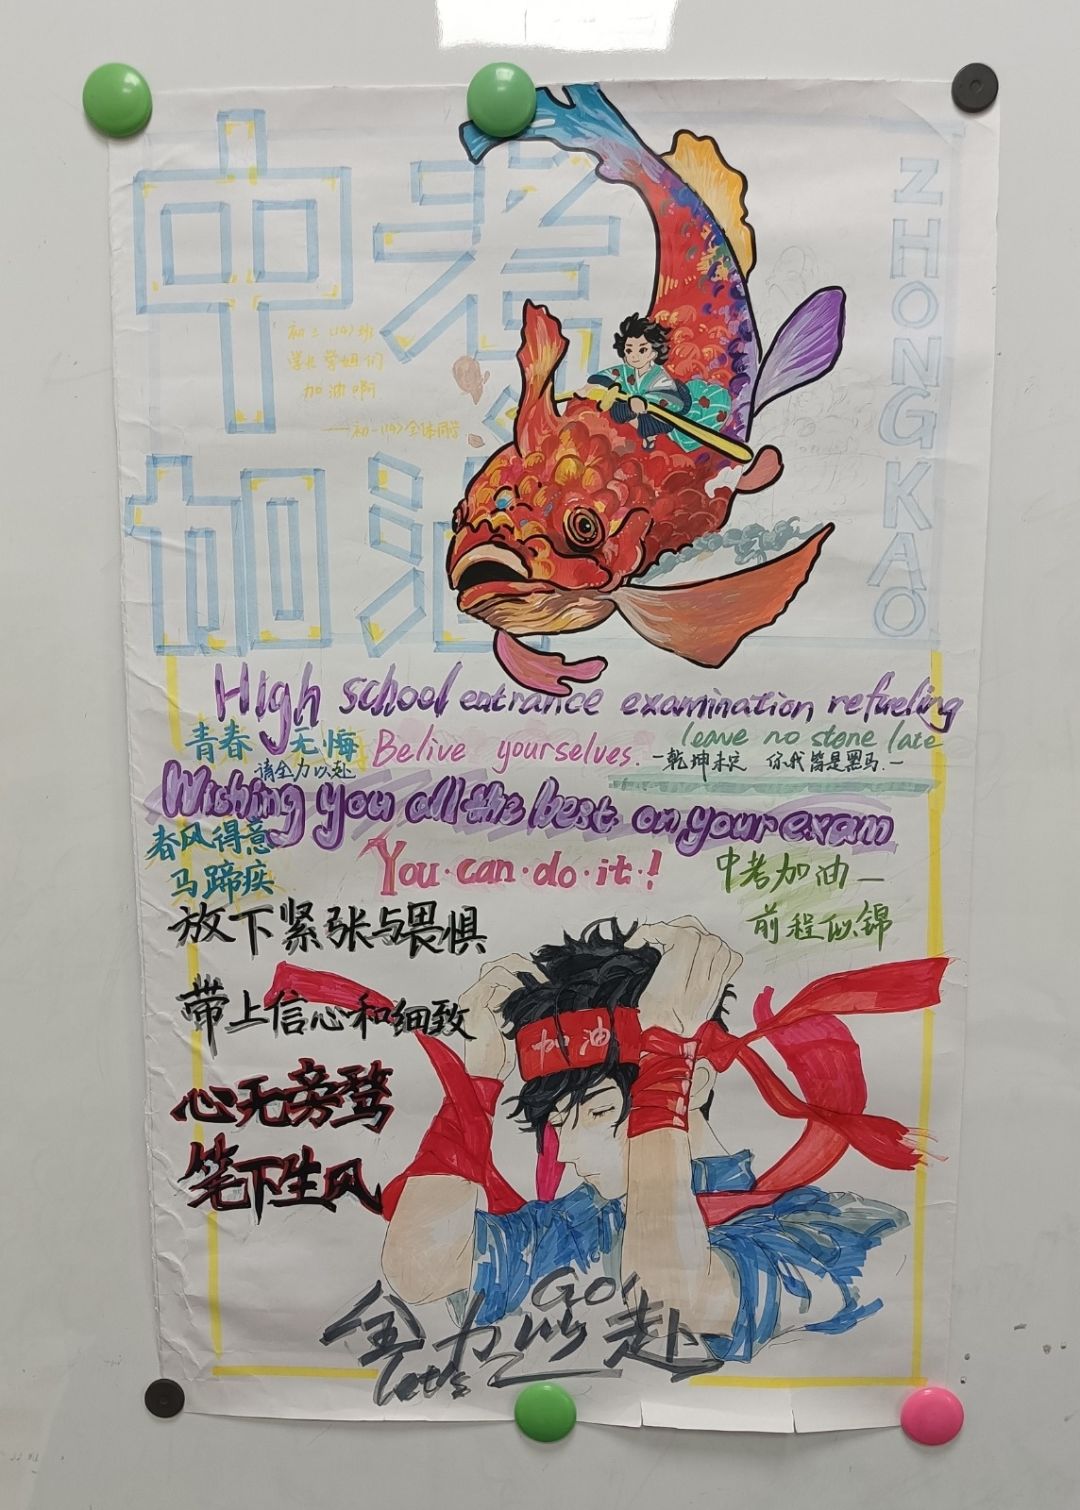 中考
加油
ZHONGKAO
初三(14)班
学长学姐们
加油啊
——初一(14)全体同学
High school entrance examination refueling
青春 无悔
请全力以赴
Belive yourselves.
leave no stone late
-乾坤未定 你我皆是黑马.-
Wishing you all the best on your exam
春风得意
马蹄疾
You·can·do·it·!
中考加油—
前程似锦
放下紧张与畏惧
带上信心和细致
心无旁骛
笔下生风
加油
GO!
全力以赴
let's